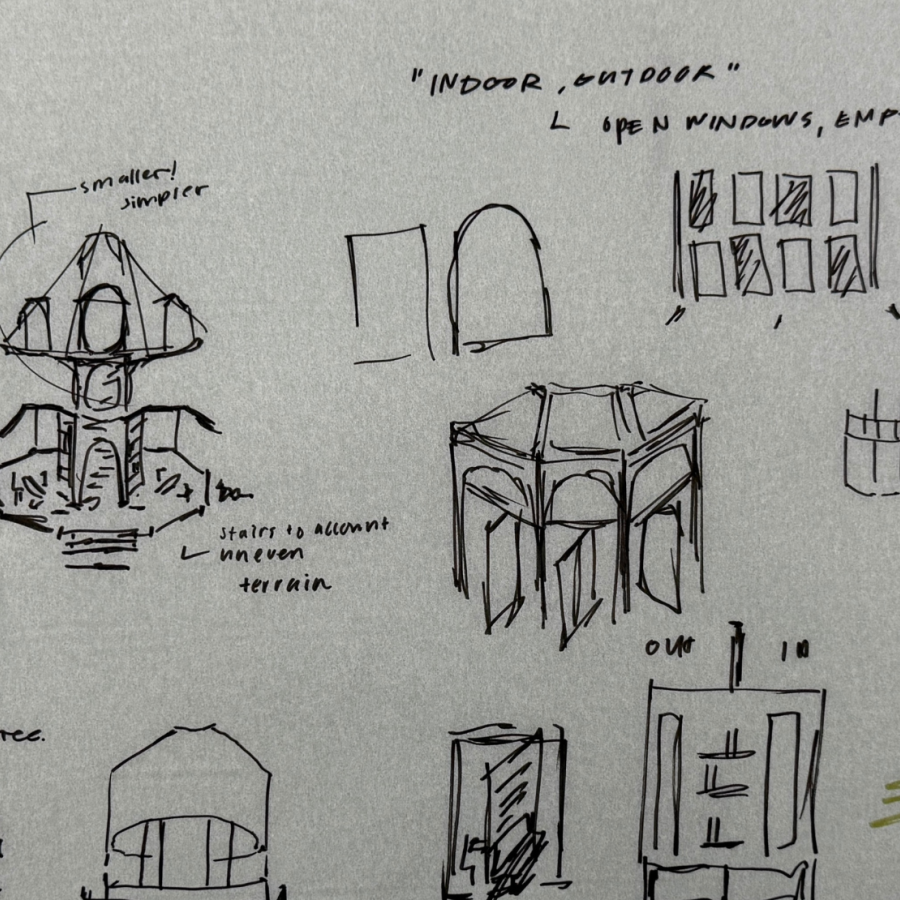 "INDOOR, OUTDOOR"
OPEN WINDOWS, EMP
smaller!
simpler
stairs to account
uneven
terrain
OUT IN
ree.